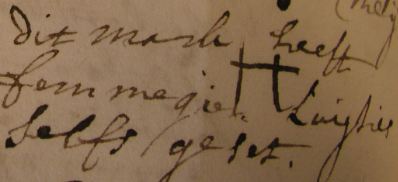 dit mark heeft
femmegien Luijties
selfs geset.